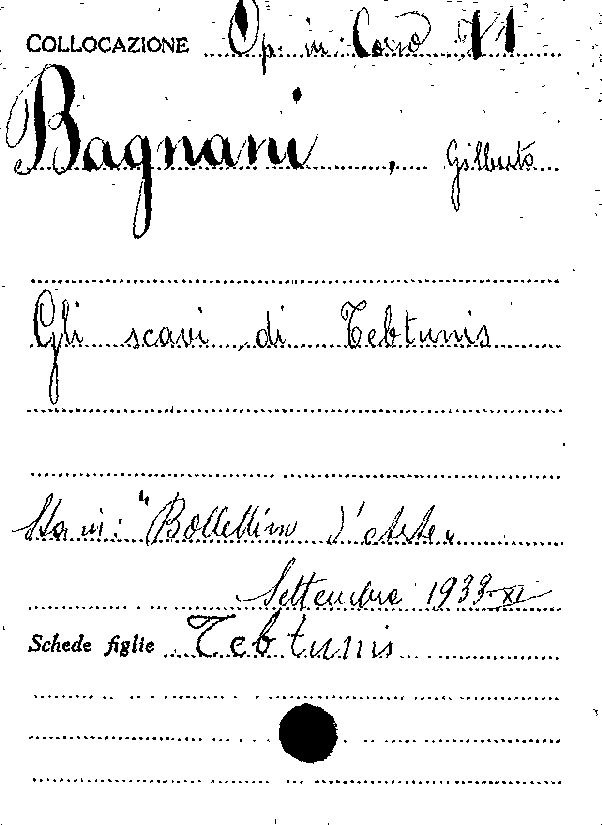 COLLOCAZIONE Op. in Corso 11
Bagnani, Gilberto
Gli scavi di Tebtunis
Sta in: "Bollettino d'Arte"
Settembre 1933-XI
Schede figlie Tebtunis